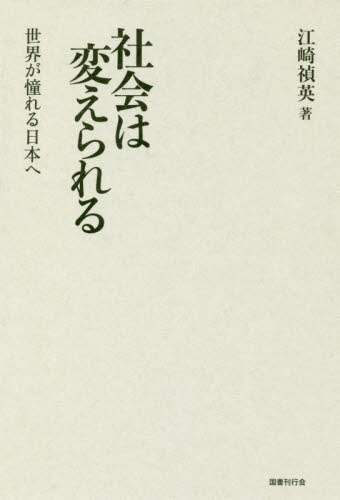 江崎禎英 著
社会は
変えられる
世界が憧れる日本へ
国書刊行会